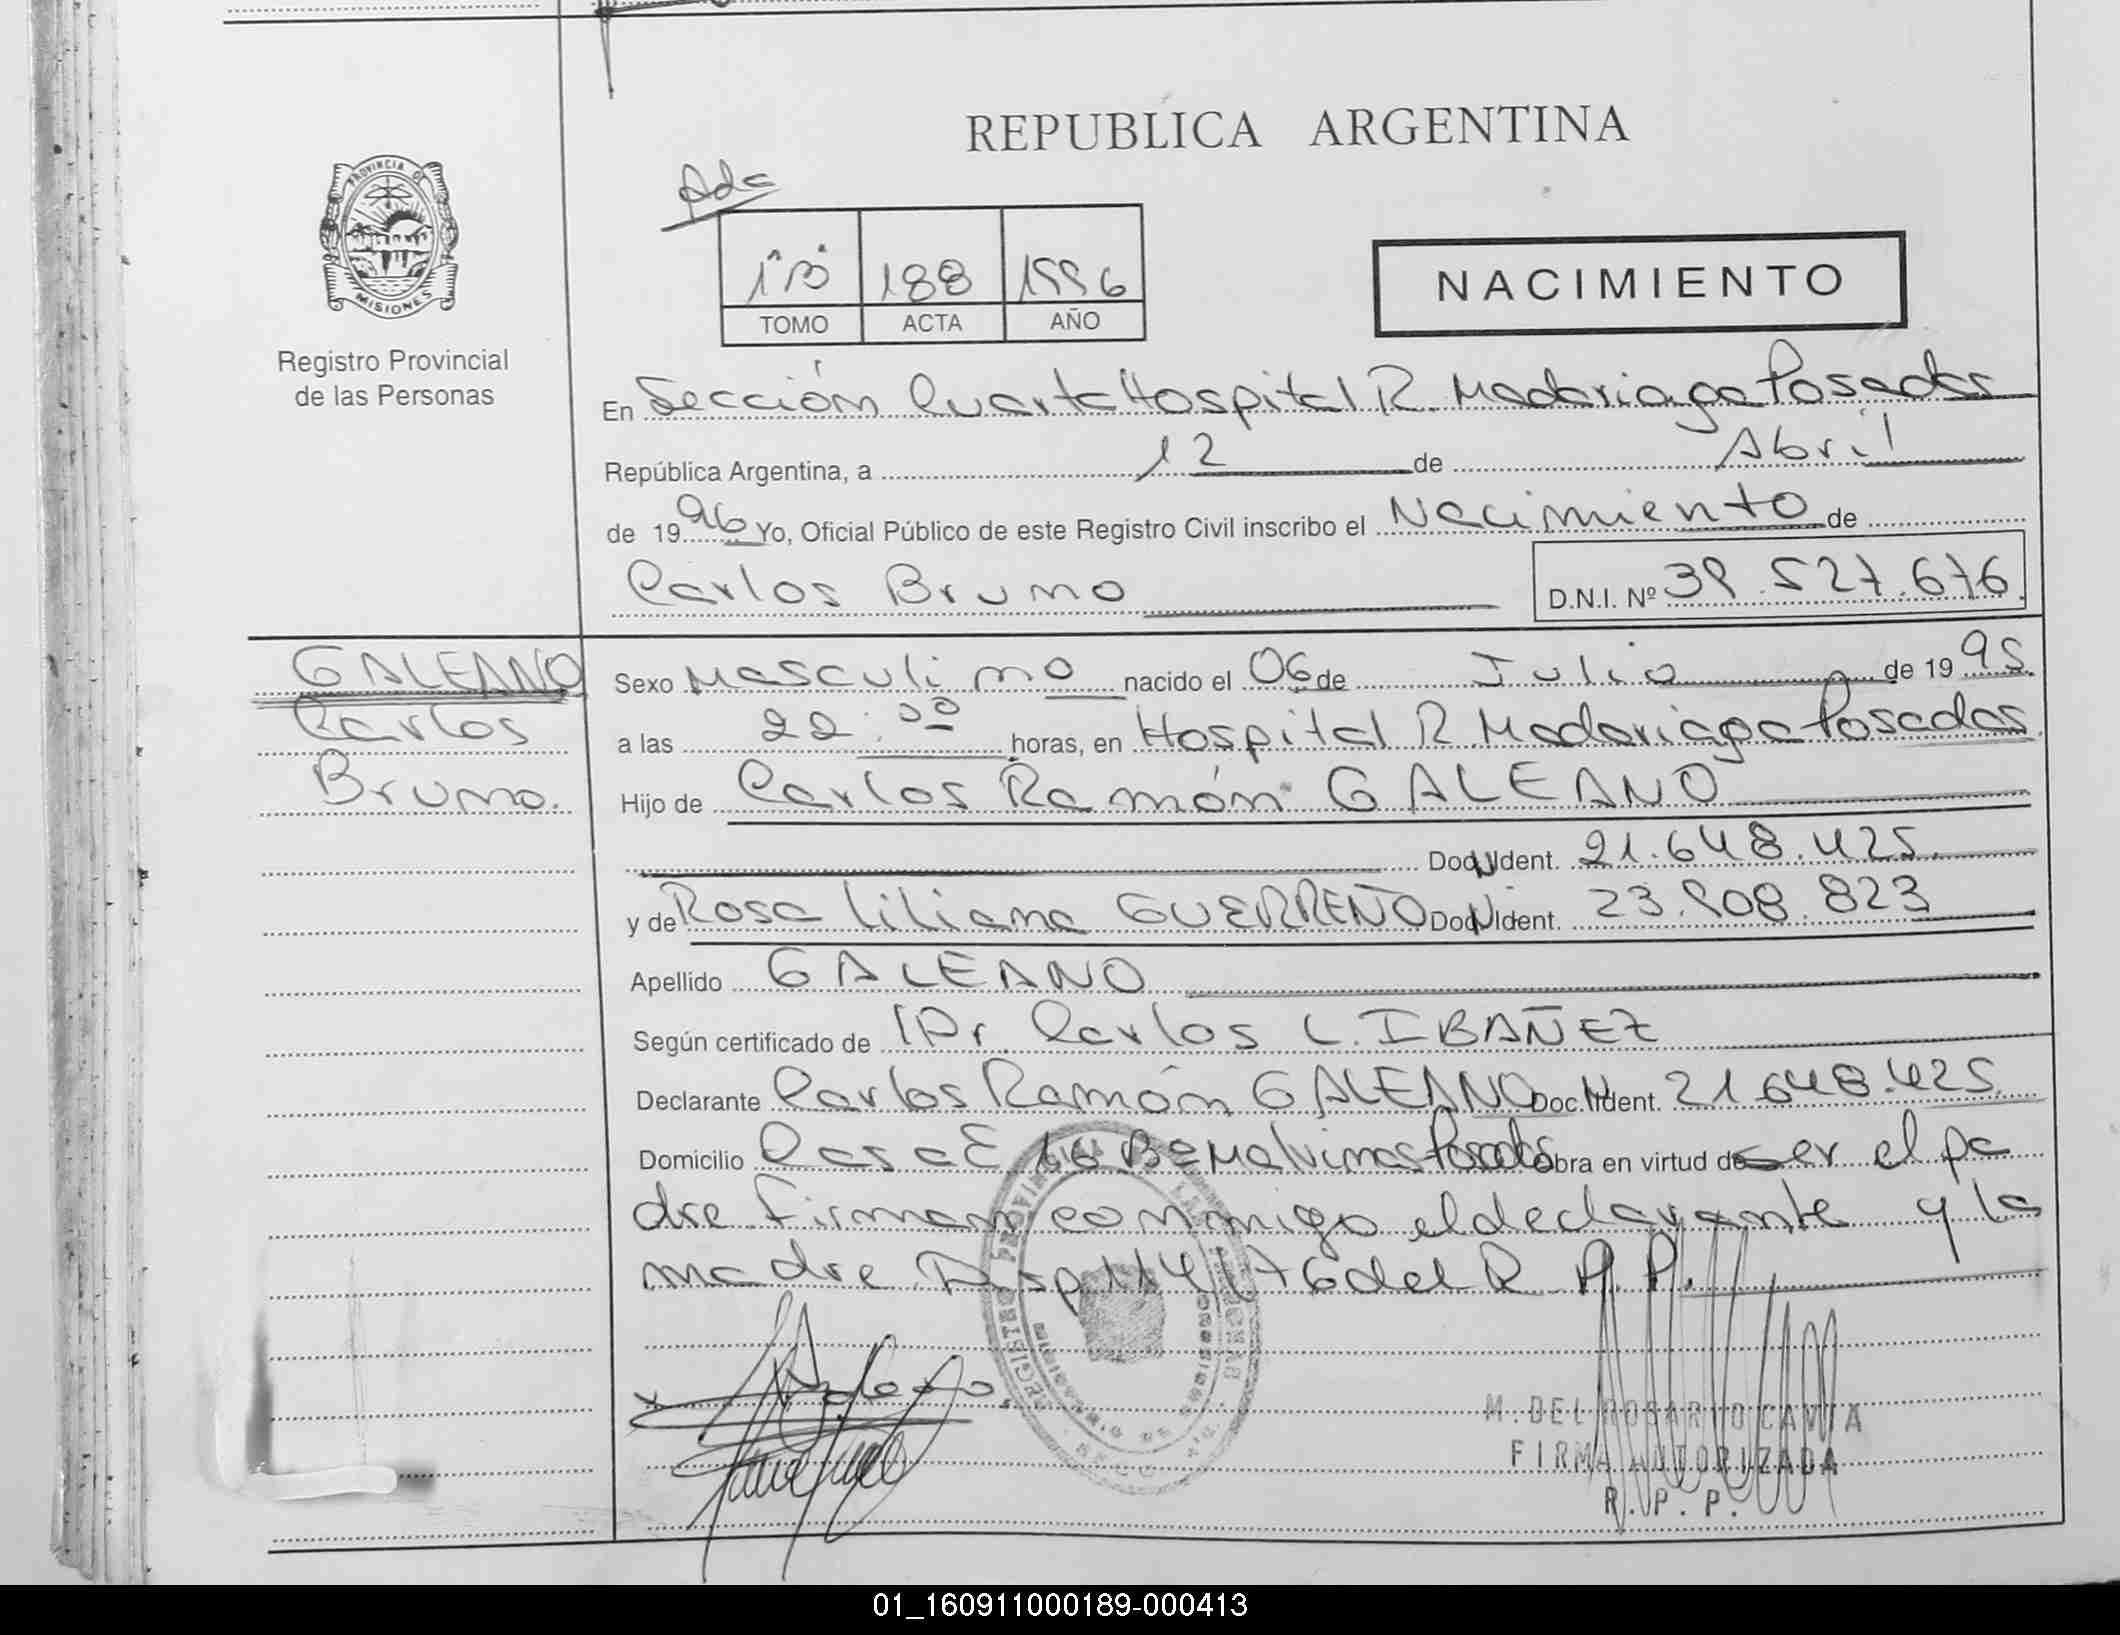 REPUBLICA ARGENTINA
PROVINCIA DE
MISIONES
Registro Provincial
de las Personas
Ada
1°B 188 1996
TOMO ACTA AÑO
NACIMIENTO
En Sección Cuarta Hospital R. Madariaga Posadas
República Argentina, a 12 de Abril
de 1996 Yo, Oficial Público de este Registro Civil inscribo el Nacimiento de
Carlos Bruno D.N.I. Nº 39.527.676
GALEANO
Carlos
Bruno.
Sexo Masculino nacido el 06 de Julio de 1995
a las 22:00 horas, en Hospital R. Madariaga Posadas
Hijo de Carlos Ramón GALEANO
Doc. Ident. 21.648.425.
y de Rosa Liliana GUERREÑO Doc. Ident. 23.908.823
Apellido GALEANO
Según certificado de Dr. Carlos L. IBAÑEZ
Declarante Carlos Ramón GALEANO Doc. Ident. 21.648.425
Domicilio Casa E 16 Bº Malvinas Posadas obra en virtud de ser el pa
dre Firman conmigo el declarante y la
madre Disp 114/76 del R.P.P.
REGISTRO PROVINCIAL DE LAS PERSONAS
M. DEL ROSARIO CAVIA
FIRMA AUTORIZADA
R. P. P.
01_160911000189-000413